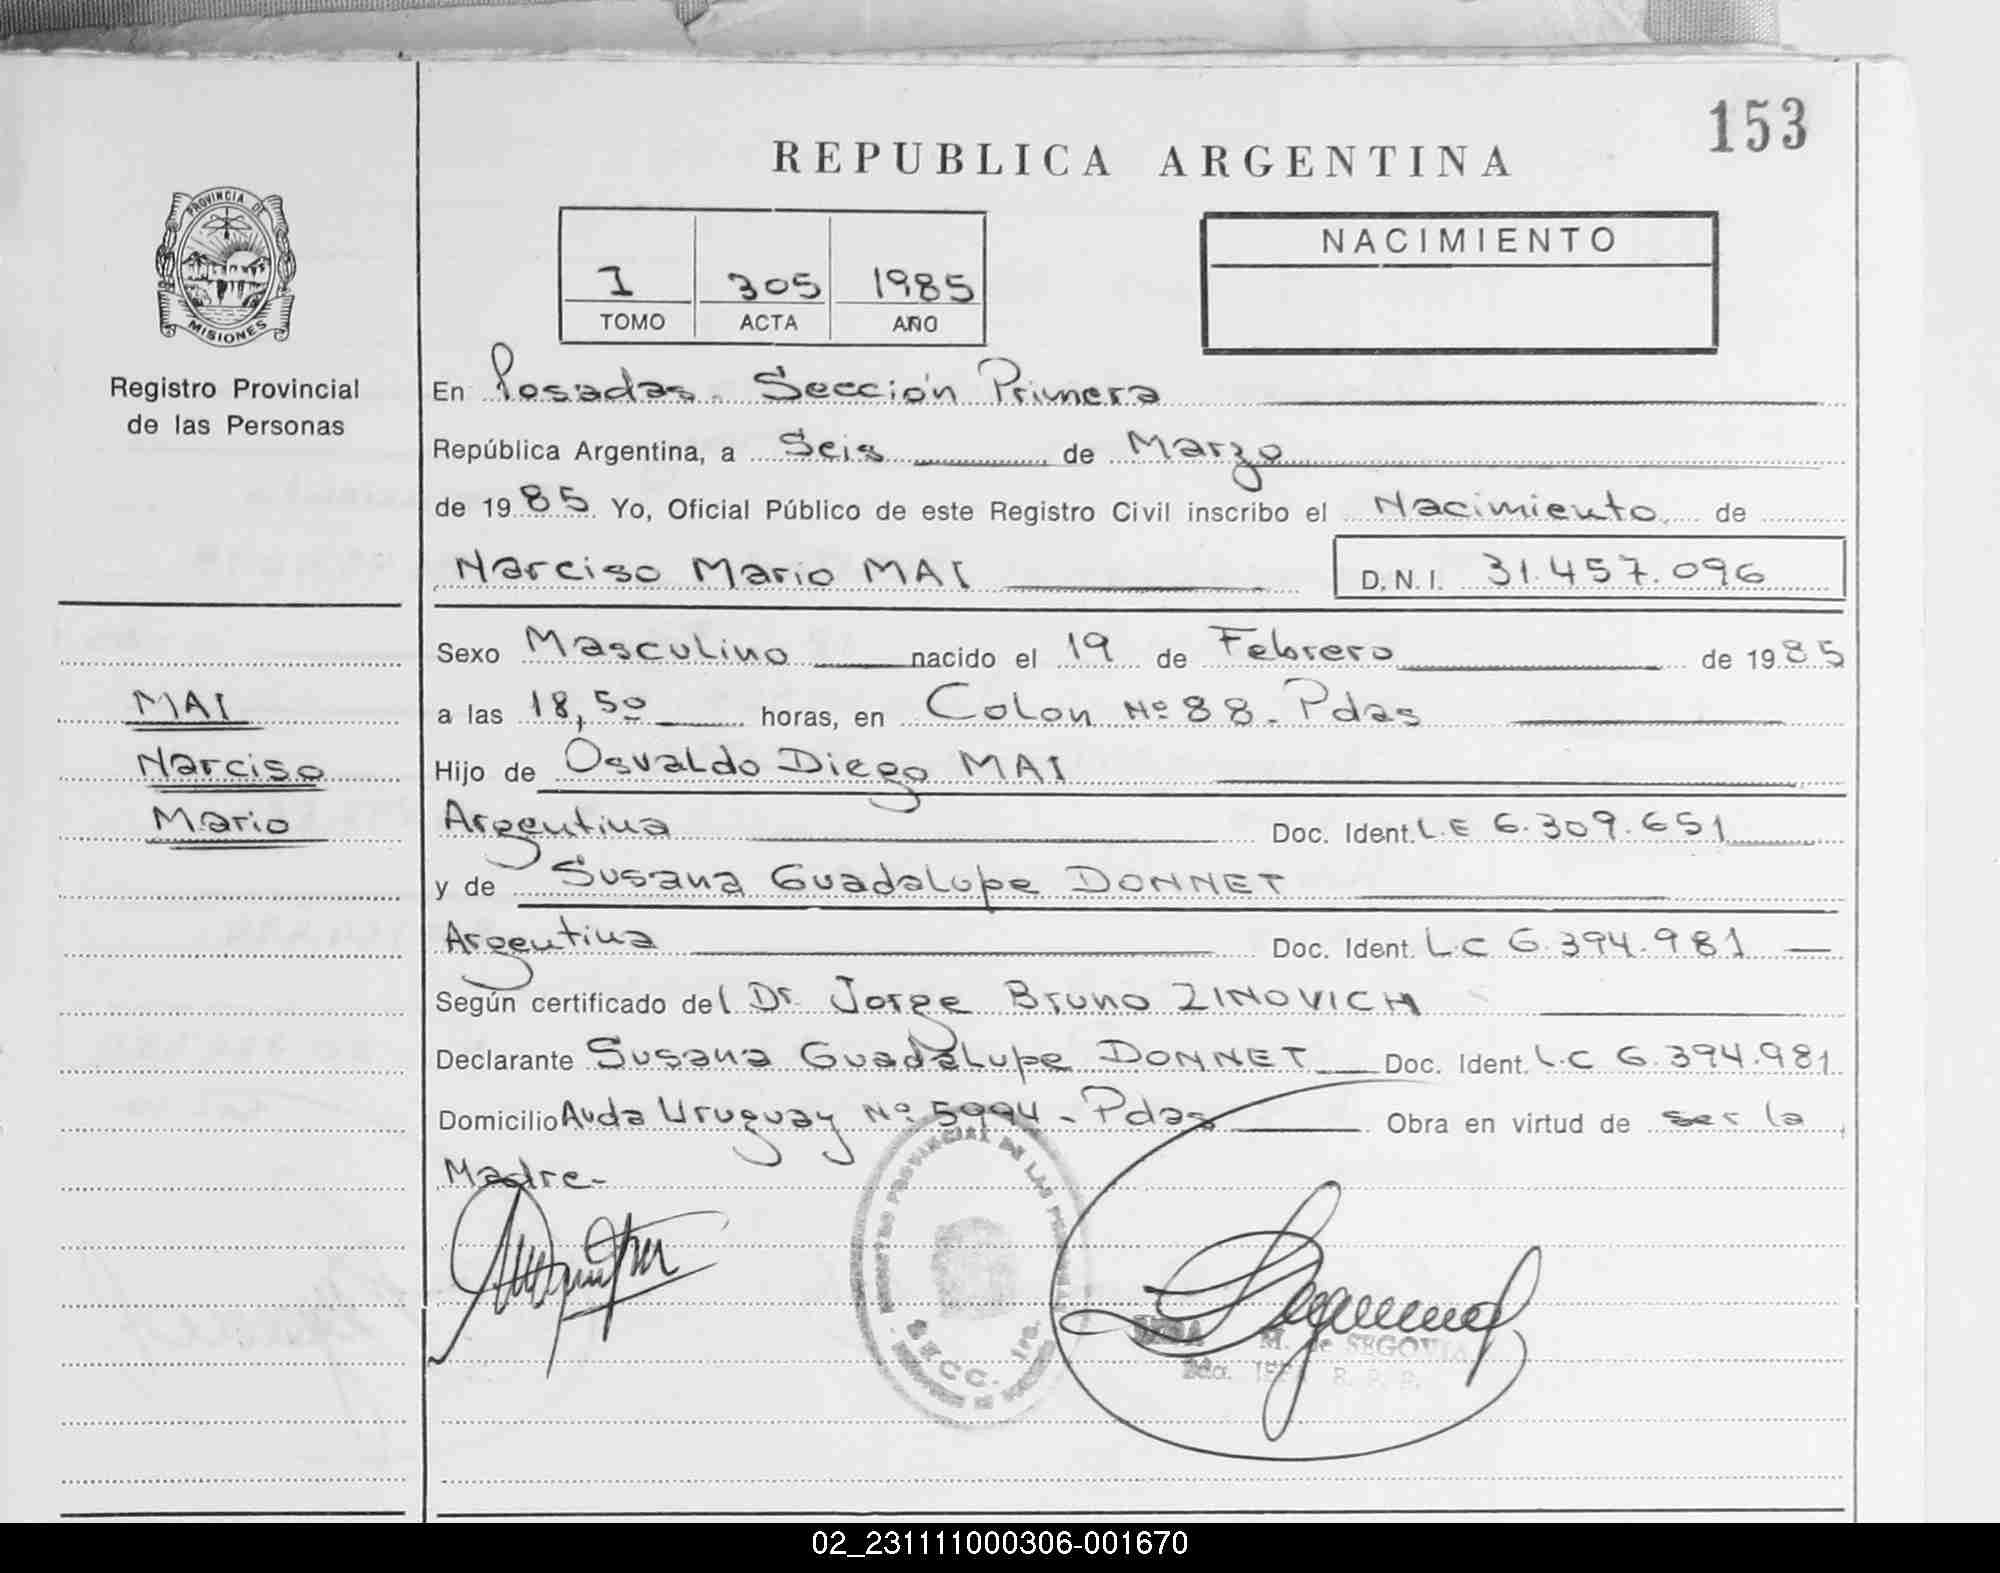 153
REPUBLICA ARGENTINA
PROVINCIA DE
MISIONES
Registro Provincial
de las Personas
1 305 1985
TOMO ACTA AÑO
NACIMIENTO
En Posadas. Sección Primera
República Argentina, a Seis de Marzo
de 1985 Yo, Oficial Público de este Registro Civil inscribo el Nacimiento de
Narciso Mario MAI D.N.I. 31.457.096
Sexo Masculino nacido el 19 de Febrero de 1985
MAI
Narciso
Mario
a las 18,50 horas, en Colon Nº 88 - Pdas
Hijo de Osvaldo Diego MAI
Argentina Doc. Ident. L.E 6.309.651
y de Susana Guadalupe DONNET
Argentina Doc. Ident. L.C 6.394.981 —
Según certificado del Dr. Jorge Bruno ZINOVICH
Declarante Susana Guadalupe DONNET Doc. Ident. L.C 6.394.981
Domicilio Avda Uruguay Nº 5994 - Pdas Obra en virtud de ser la
Madre-
REGISTRO PROVINCIAL DE LAS
SECC. 1ra.
M. de SEGOVIA
2da.
02_231111000306-001670